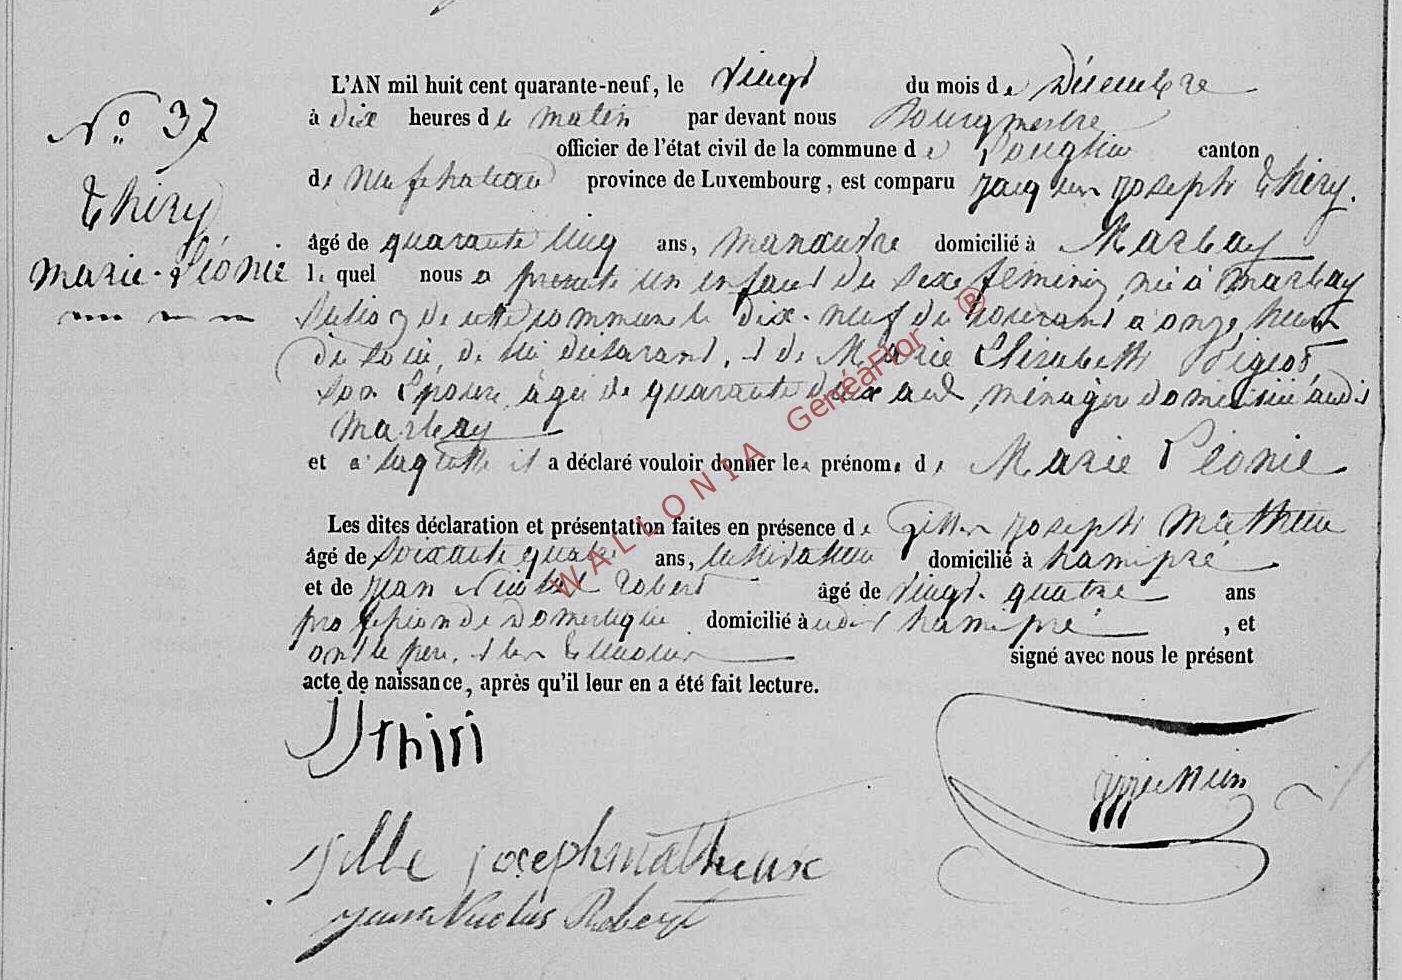 L'AN mil huit cent quarante-neuf, le vingt du mois de Décembre
N° 37
à dix heures du matin par devant nous Bourgmestre
officier de l'état civil de la commune de Longlier canton
de Neufchateau province de Luxembourg, est comparu Jacques Joseph Thiry.
Thiry
âgé de quarante cinq ans, manœuvre domicilié à Marbay
Marie-Léonie
lequel nous a presenté un enfant du sexe féminin, né à Marbay
Section de cette commune le dix-neuf du courant à onze heures
du soir, de lui déclarant, et de Marie Elisabeth Pigeot,
son Epouse, âgée de quarante deux ans, ménagère domiciliée audit
Marbay
et à laquelle il a déclaré vouloir donner les prénoms de Marie Léonie
Les dites déclaration et présentation faites en présence de Gilles Joseph Matheu
âgé de soixante quatre ans, cultivateur domicilié à hamipré
et de Jean Nicolas Robert âgé de vingt-quatre ans
profession de domestique domicilié à udit hamipré, et
ont le père, et les temoins signé avec nous le présent
acte de naissance, après qu'il leur en a été fait lecture.
JJ thiri
Gille josephmatheux
Jean Nicolas Robert
WALLONIA GénéaFlor ®